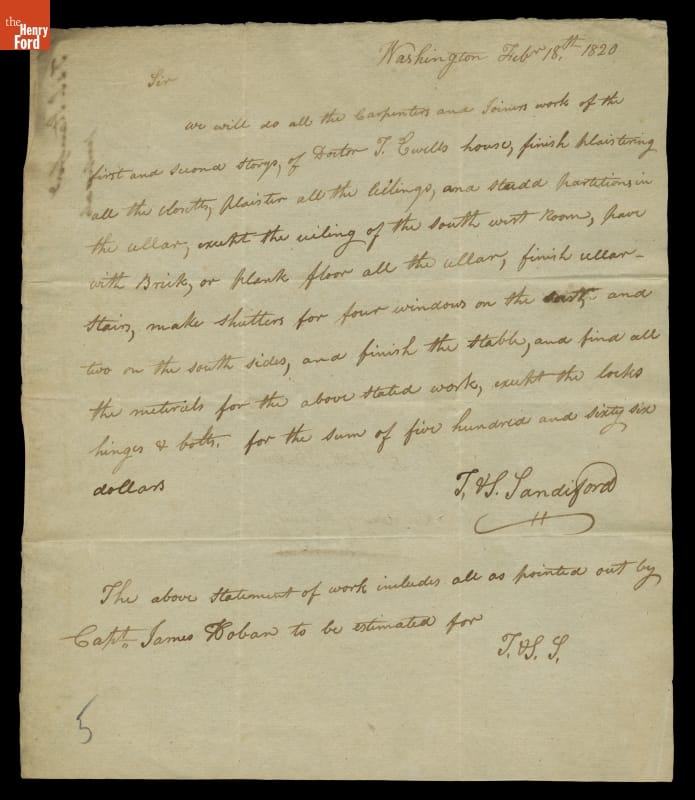 the
Henry
Ford
Washington Febr 18,th 1820
Sir
we will do all the Carpenters and Joiners work of the
first and second storys, of Doctor T. Ewells house, finish plaistering
all the closetts, plaister all the ceilings, and studd partitions in
the cellar, except the ceiling of the south west Room, pave
with Brick, or plank floor all the cellar, finish cellar-
stairs, make shutters for four windows on the east, and
two on the south sides, and finish the stable, and find all
the meterials for the above stated work, except the locks
hinges & bolts. for the sum of five hundred and sixty six
dollars
T. & S. Sandiford
The above statement of work includes all as pointed out by
Capt. James Hoban to be estimated for
T. & S. S.
5